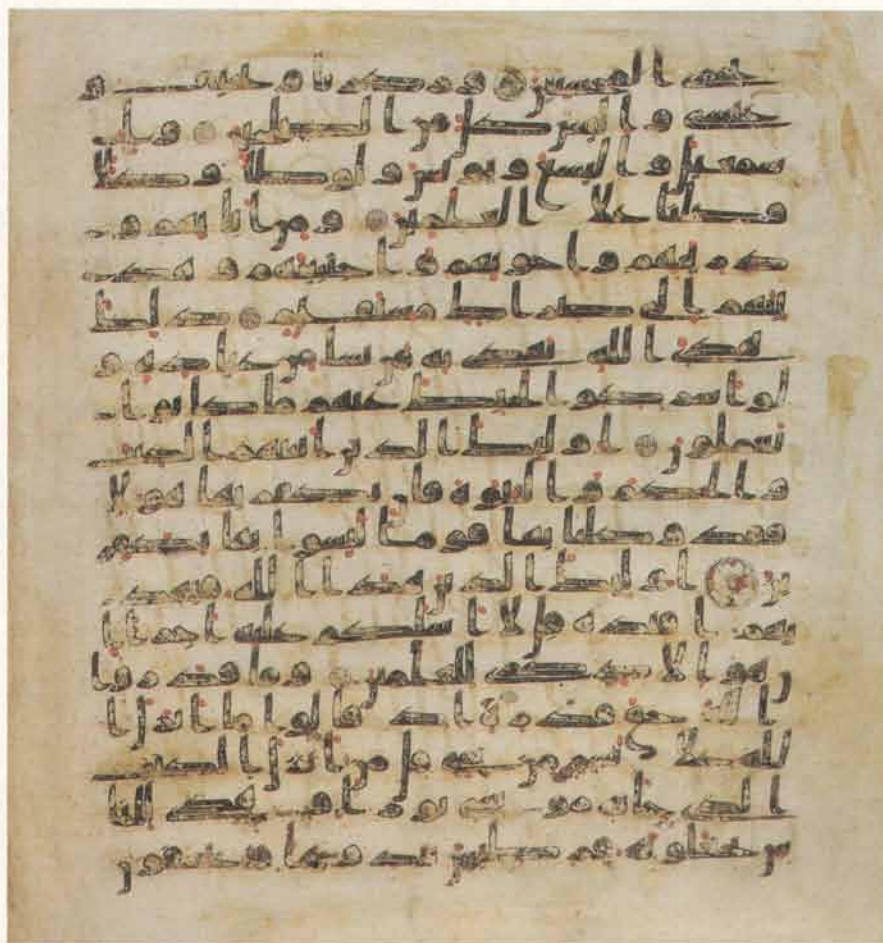 نجزى المحسنين وزكريا ويحيى و
عيسى والياس كل من الصلحين وا
سمعيل واليسع ويونس ولوطا وكلا
فضلنا على العلمين ومن ابايهم و
ذريتهم واخونهم واجتبينهم وهد
ينهم الى صرط مستقيم ذلك
هدى الله يهدى به من يشا من عباده و
لو اشركوا لحبط عنهم ما كانوا
يعملون اوليك الذين اتينهم الكتب
والحكم والنبوة فان يكفر بها هولا
فقد وكلنا بها قوما ليسوا بها بكفر
ين اوليك الذين هدى الله فبهد
يهم اقتده قل لا اسلكم عليه اجرا ا
ن هو الا ذكرى للعلمين وما قدروا
الله حق قدره اذ قالوا ما انزل ا
لله على بشر من شى قل من انزل الكتب
الذى جا به موسى نورا وهدى للنا
س تجعلونه قرطيس تبدونها وتخفون